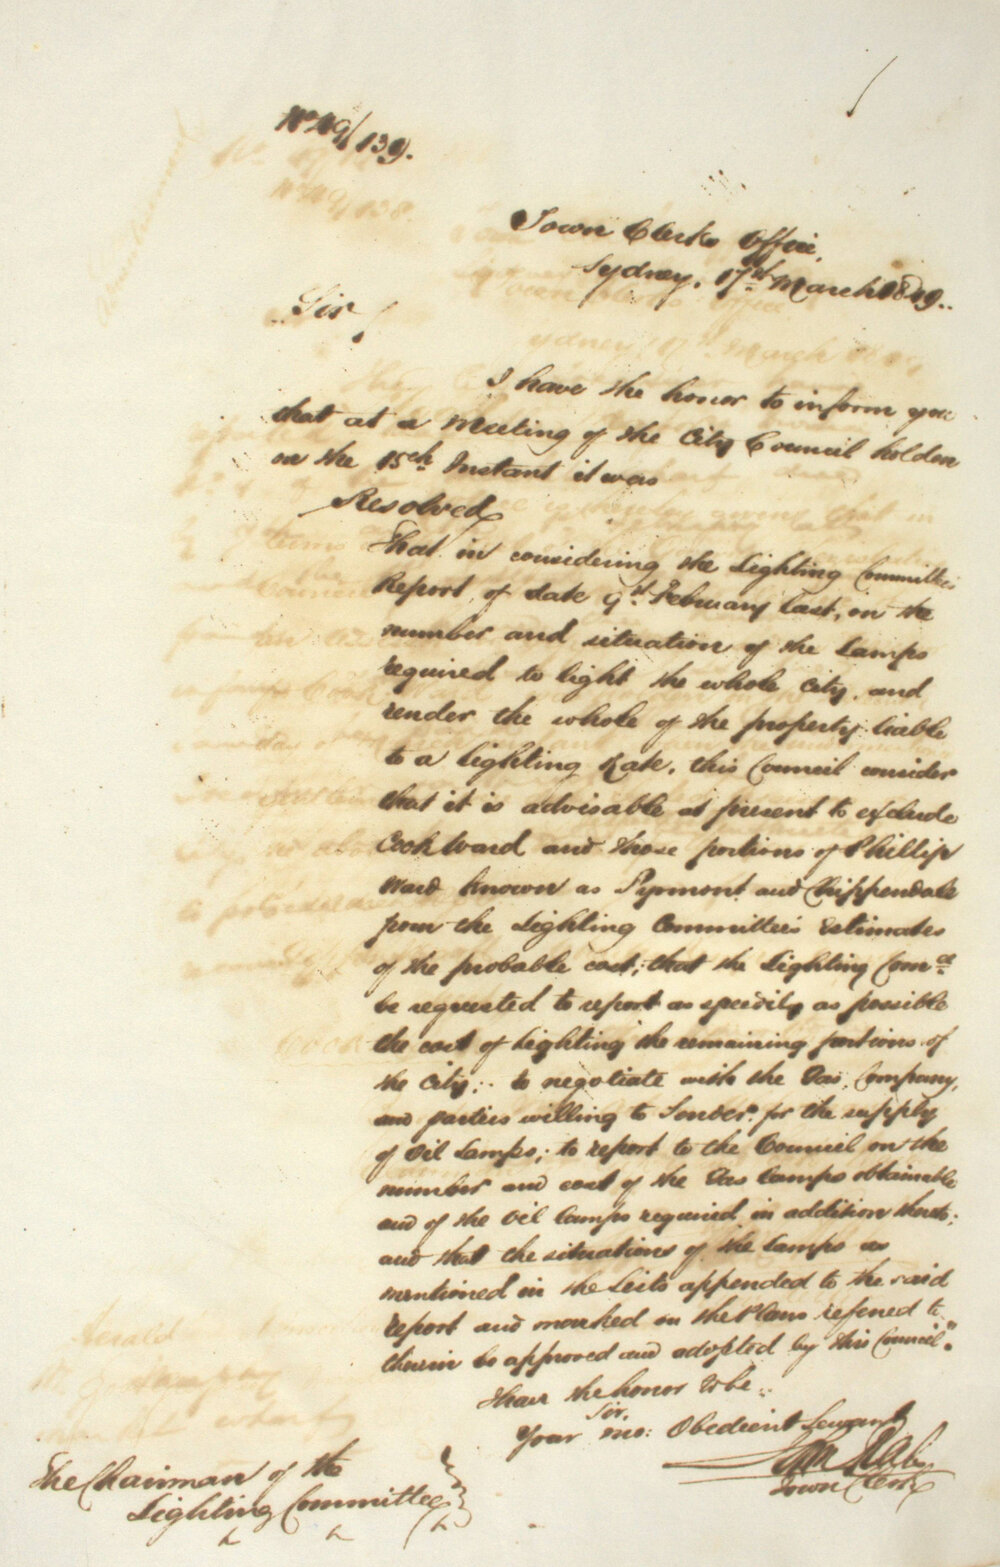 No 49/139.
Town Clerks Office,
Sydney, 17th March 1849.
Sir,
I have the honor to inform you
that at a Meeting of the City Council holden
on the 15th Instant it was
Resolved
That in considering the Lighting Committees
Report, of date 9th February last, on the
number and situation of the Lamps
required to light the whole City, and
render the whole of the property liable
to a lighting Rate, this Council consider
that it is advisable at present to exclude
Cook Ward and those portions of Phillip
Ward known as Pyrmont and Chippendale
from the Lighting Committee's Estimates
of the probable cost; that the Lighting Comee
be requested to report as speedily as possible
the cost of Lighting the remaining portions of
the City; to negotiate with the Gas Company,
and parties willing to Tender for the supply
of Oil Lamps; to report to the Council on the
number and cost of the Gas Lamps obtainable
and of the Oil Lamps required in addition thereto;
and that the situations of the Lamps as
mentioned in the Lists appended to the said
report and marked on the Plans referred to
therein be approved and adopted by this Council."
I have the honor to be
Sir,
Your mo: Obedient Servant
Town Clerk
The Chairman of the
Lighting Committee